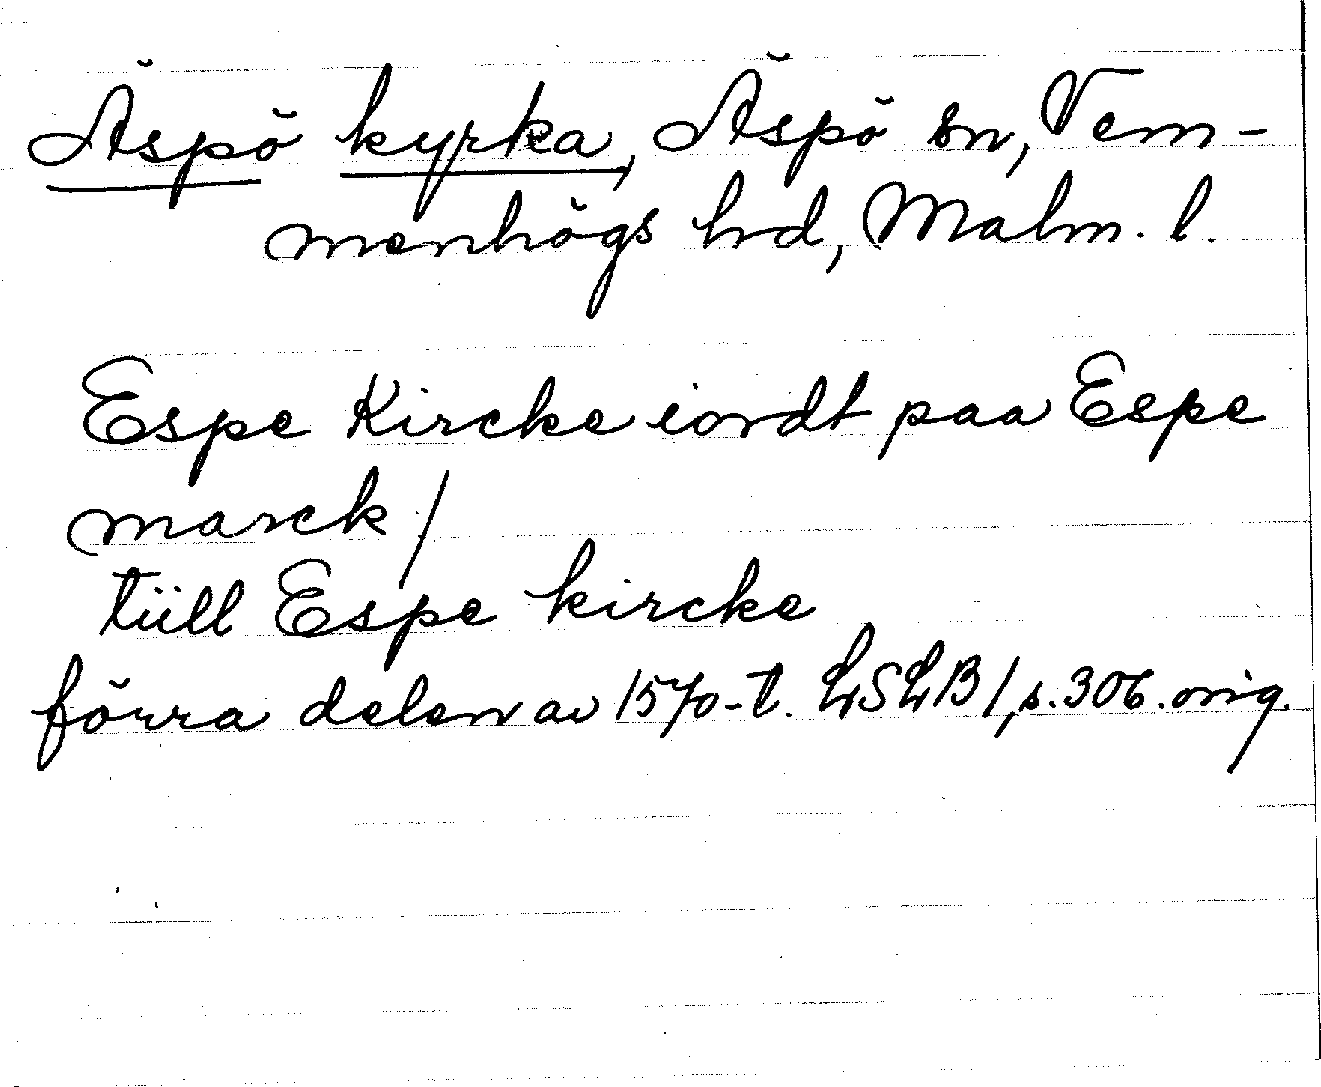 Äspö kyrka, Äspö sn, Vem-
menhögs hd, Malm. l.
Espe Kircke iordt paa Espe
marck /
tüll Espe kircke
förra delen av 1570-t. LSLB /, s. 306. orig.